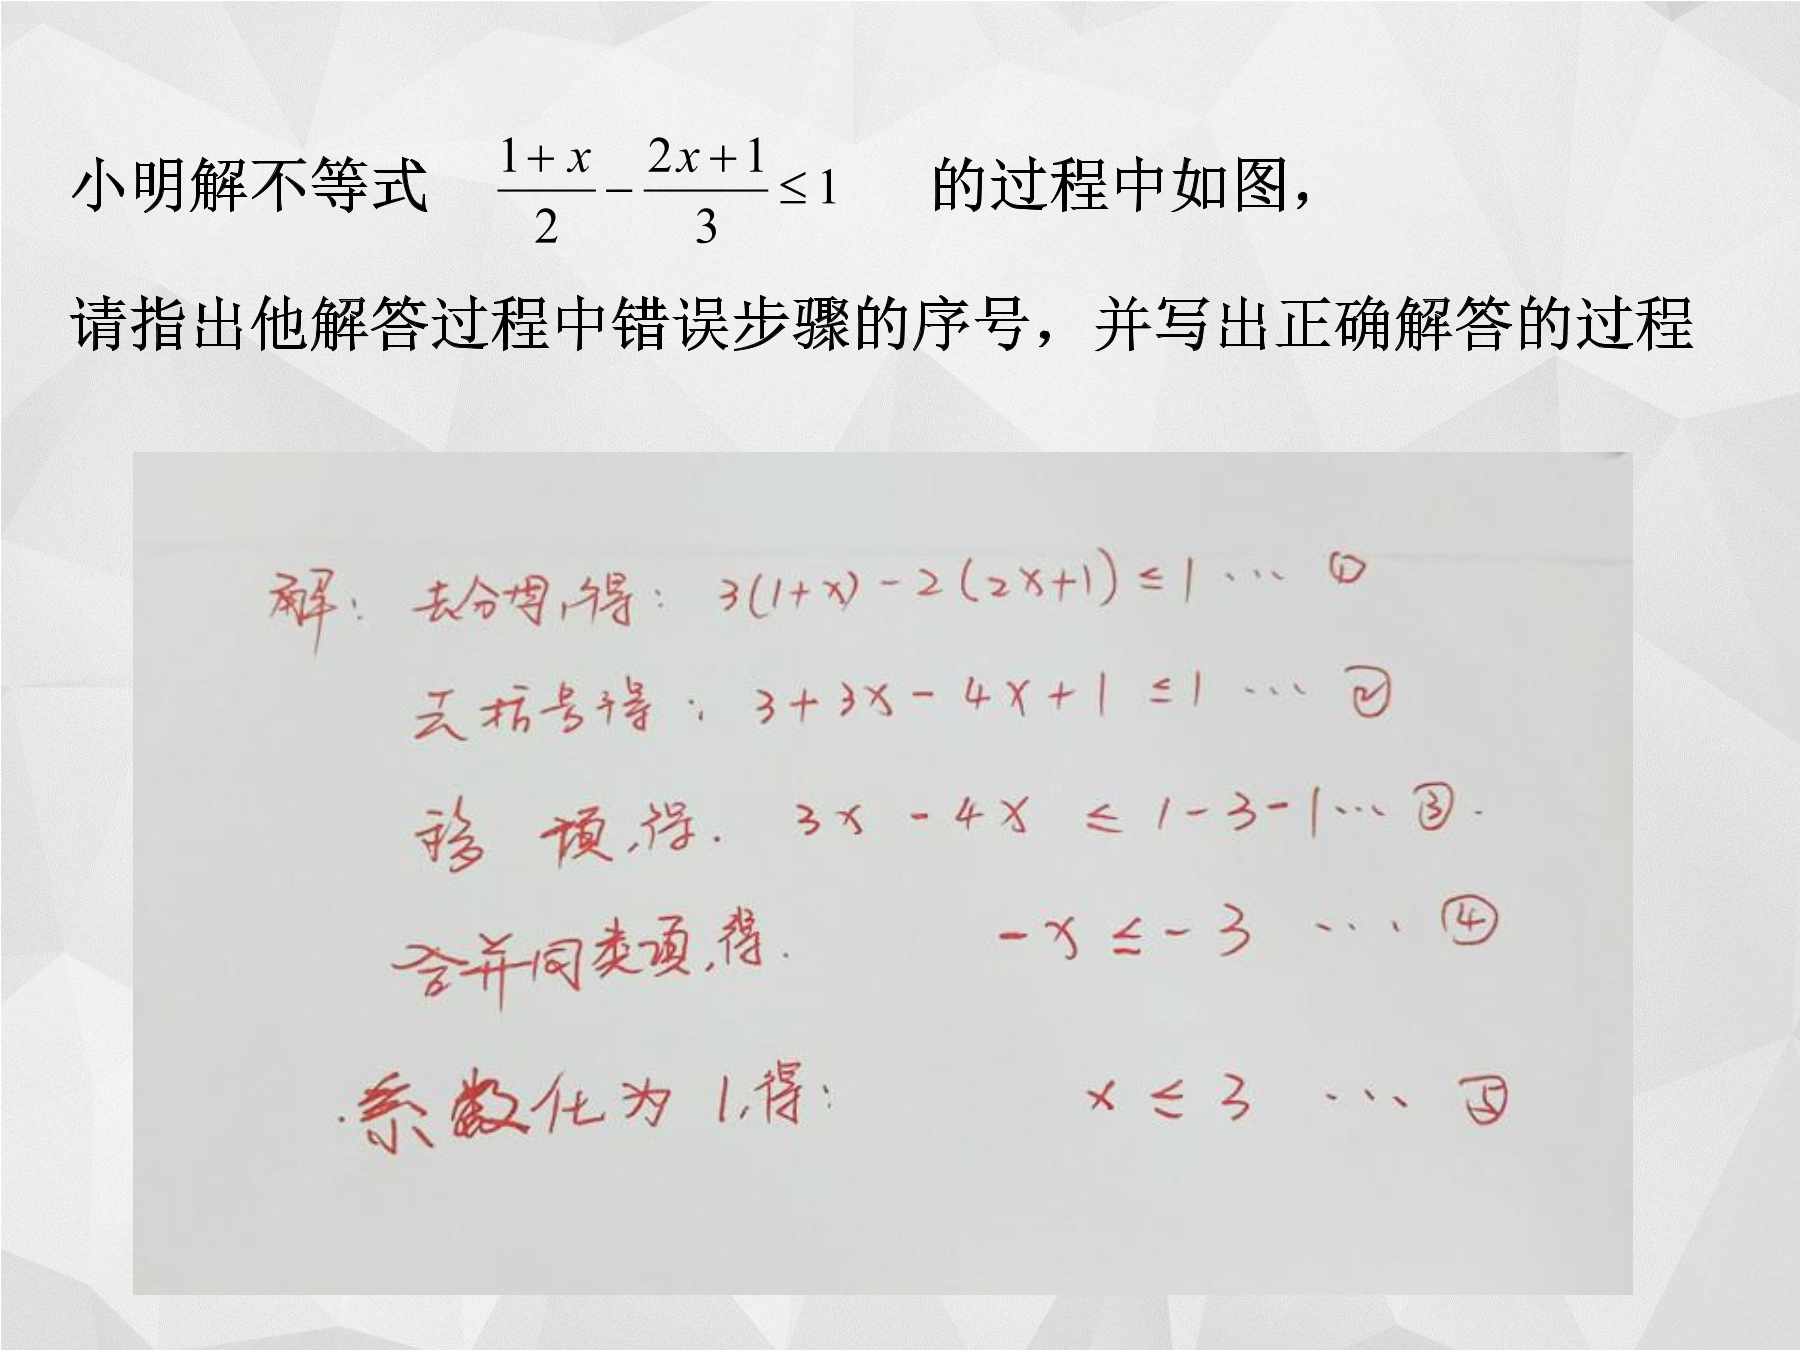 小明解不等式 \frac{1+x}{2} - \frac{2x+1}{3} ≤ 1 的过程中如图，
请指出他解答过程中错误步骤的序号，并写出正确解答的过程
解：去分母,得：3(1+x)-2(2x+1)≤1 … ①
去括号得：3+3x-4x+1≤1 … ②
移 项,得. 3x-4x≤1-3-1… ③.
合并同类项,得. -x≤-3 … ④
系数化为1,得：x≤3 … ⑤